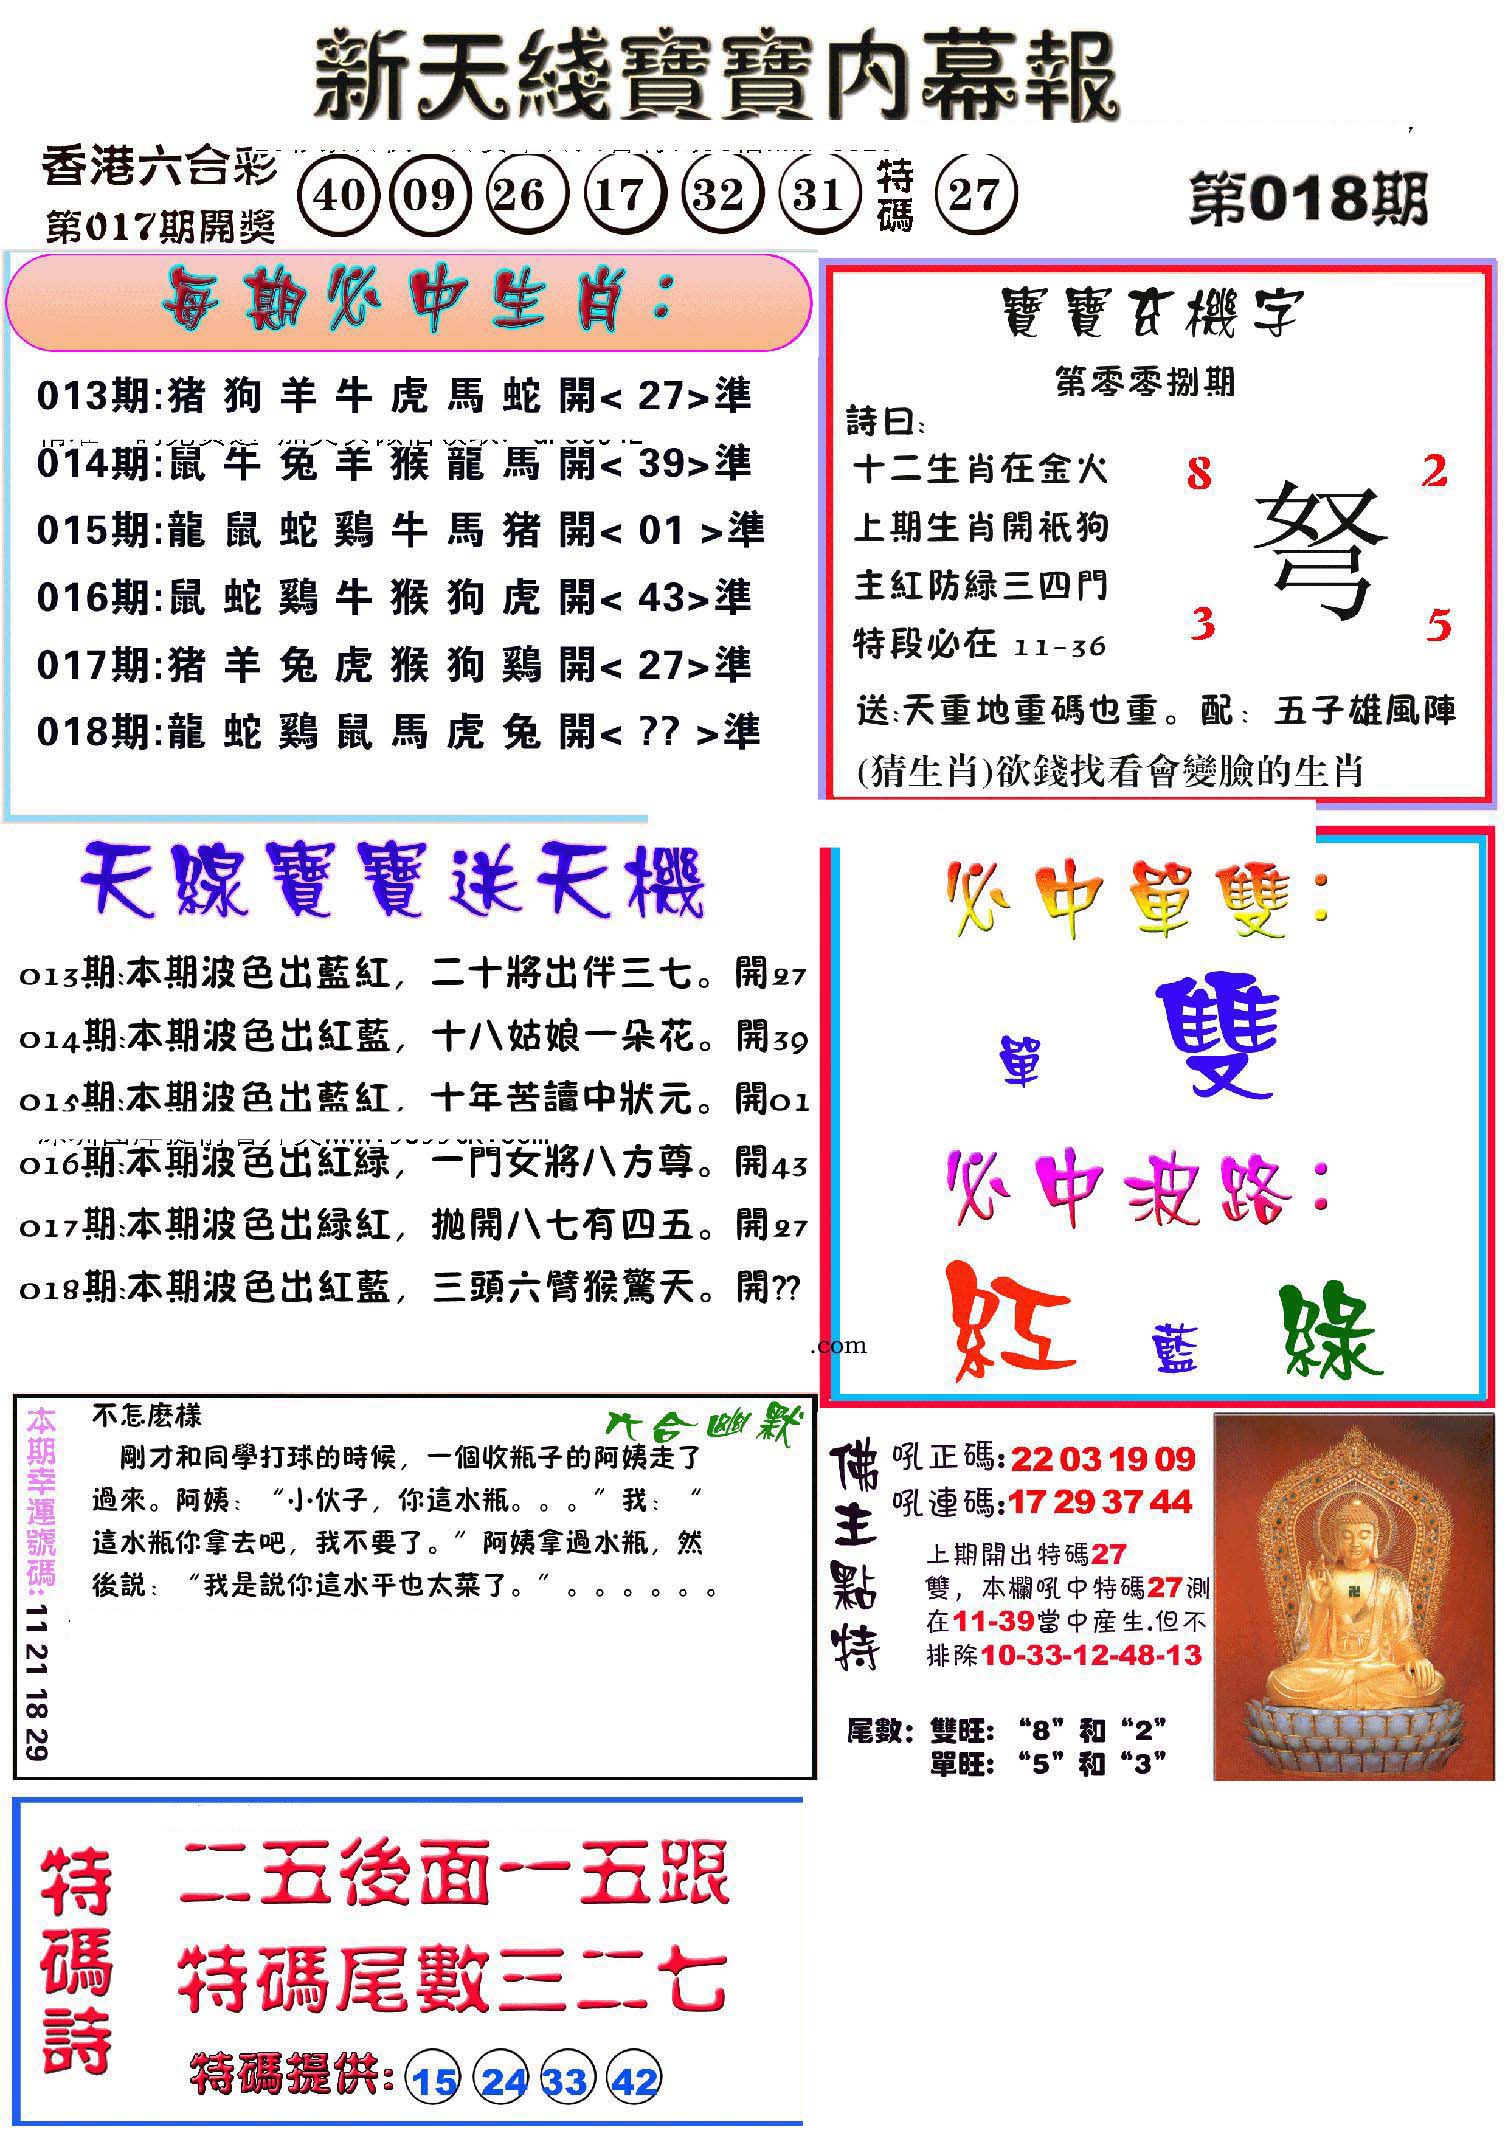 新天綫寶寶內幕報
香港六合彩
第017期開獎
40 09 26 17 32 31 特碼 27
第018期
每期必中生肖：
013期:猪 狗 羊 牛 虎 馬 蛇 開< 27>準
014期:鼠 牛 兔 羊 猴 龍 馬 開< 39>準
015期:龍 鼠 蛇 鷄 牛 馬 猪 開< 01 >準
016期:鼠 蛇 鷄 牛 猴 狗 虎 開< 43>準
017期:猪 羊 兔 虎 猴 狗 鷄 開< 27>準
018期:龍 蛇 鷄 鼠 馬 虎 兔 開< ?? >準
寶寶玄機字
第零零捌期
詩曰:
十二生肖在金火
上期生肖開衹狗
主紅防緑三四門
特段必在 11-36
8 2
弩
3 5
送:天重地重碼也重。配: 五子雄風陣
(猜生肖)欲錢找看會變臉的生肖
天線寶寶送天機
013期:本期波色出藍紅，二十將出伴三七。開27
014期:本期波色出紅藍，十八姑娘一朵花。開39
015期:本期波色出藍紅，十年苦讀中狀元。開01
016期:本期波色出紅緑，一門女將八方尊。開43
017期:本期波色出緑紅，拋開八七有四五。開27
018期:本期波色出紅藍，三頭六臂猴驚天。開??
必中單雙：
單 雙
必中波路：
紅 藍 綠
.com
本期幸運號碼:11 21 18 29
六合幽默
不怎麽樣
剛才和同學打球的時候，一個收瓶子的阿姨走了
過來。阿姨：“小伙子，你這水瓶。。。”我：“
這水瓶你拿去吧，我不要了。”阿姨拿過水瓶，然
後説：“我是説你這水平也太菜了。”。。。。。。
佛主點特
吼正碼:22 03 19 09
吼連碼:17 29 37 44
上期開出特碼27
雙，本欄吼中特碼27測
在11-39當中産生.但不
排除10-33-12-48-13
尾數：雙旺：“8”和“2”
單旺：“5”和“3”
特碼詩
二五後面一五跟
特碼尾數三二七
特碼提供: 15 24 33 42